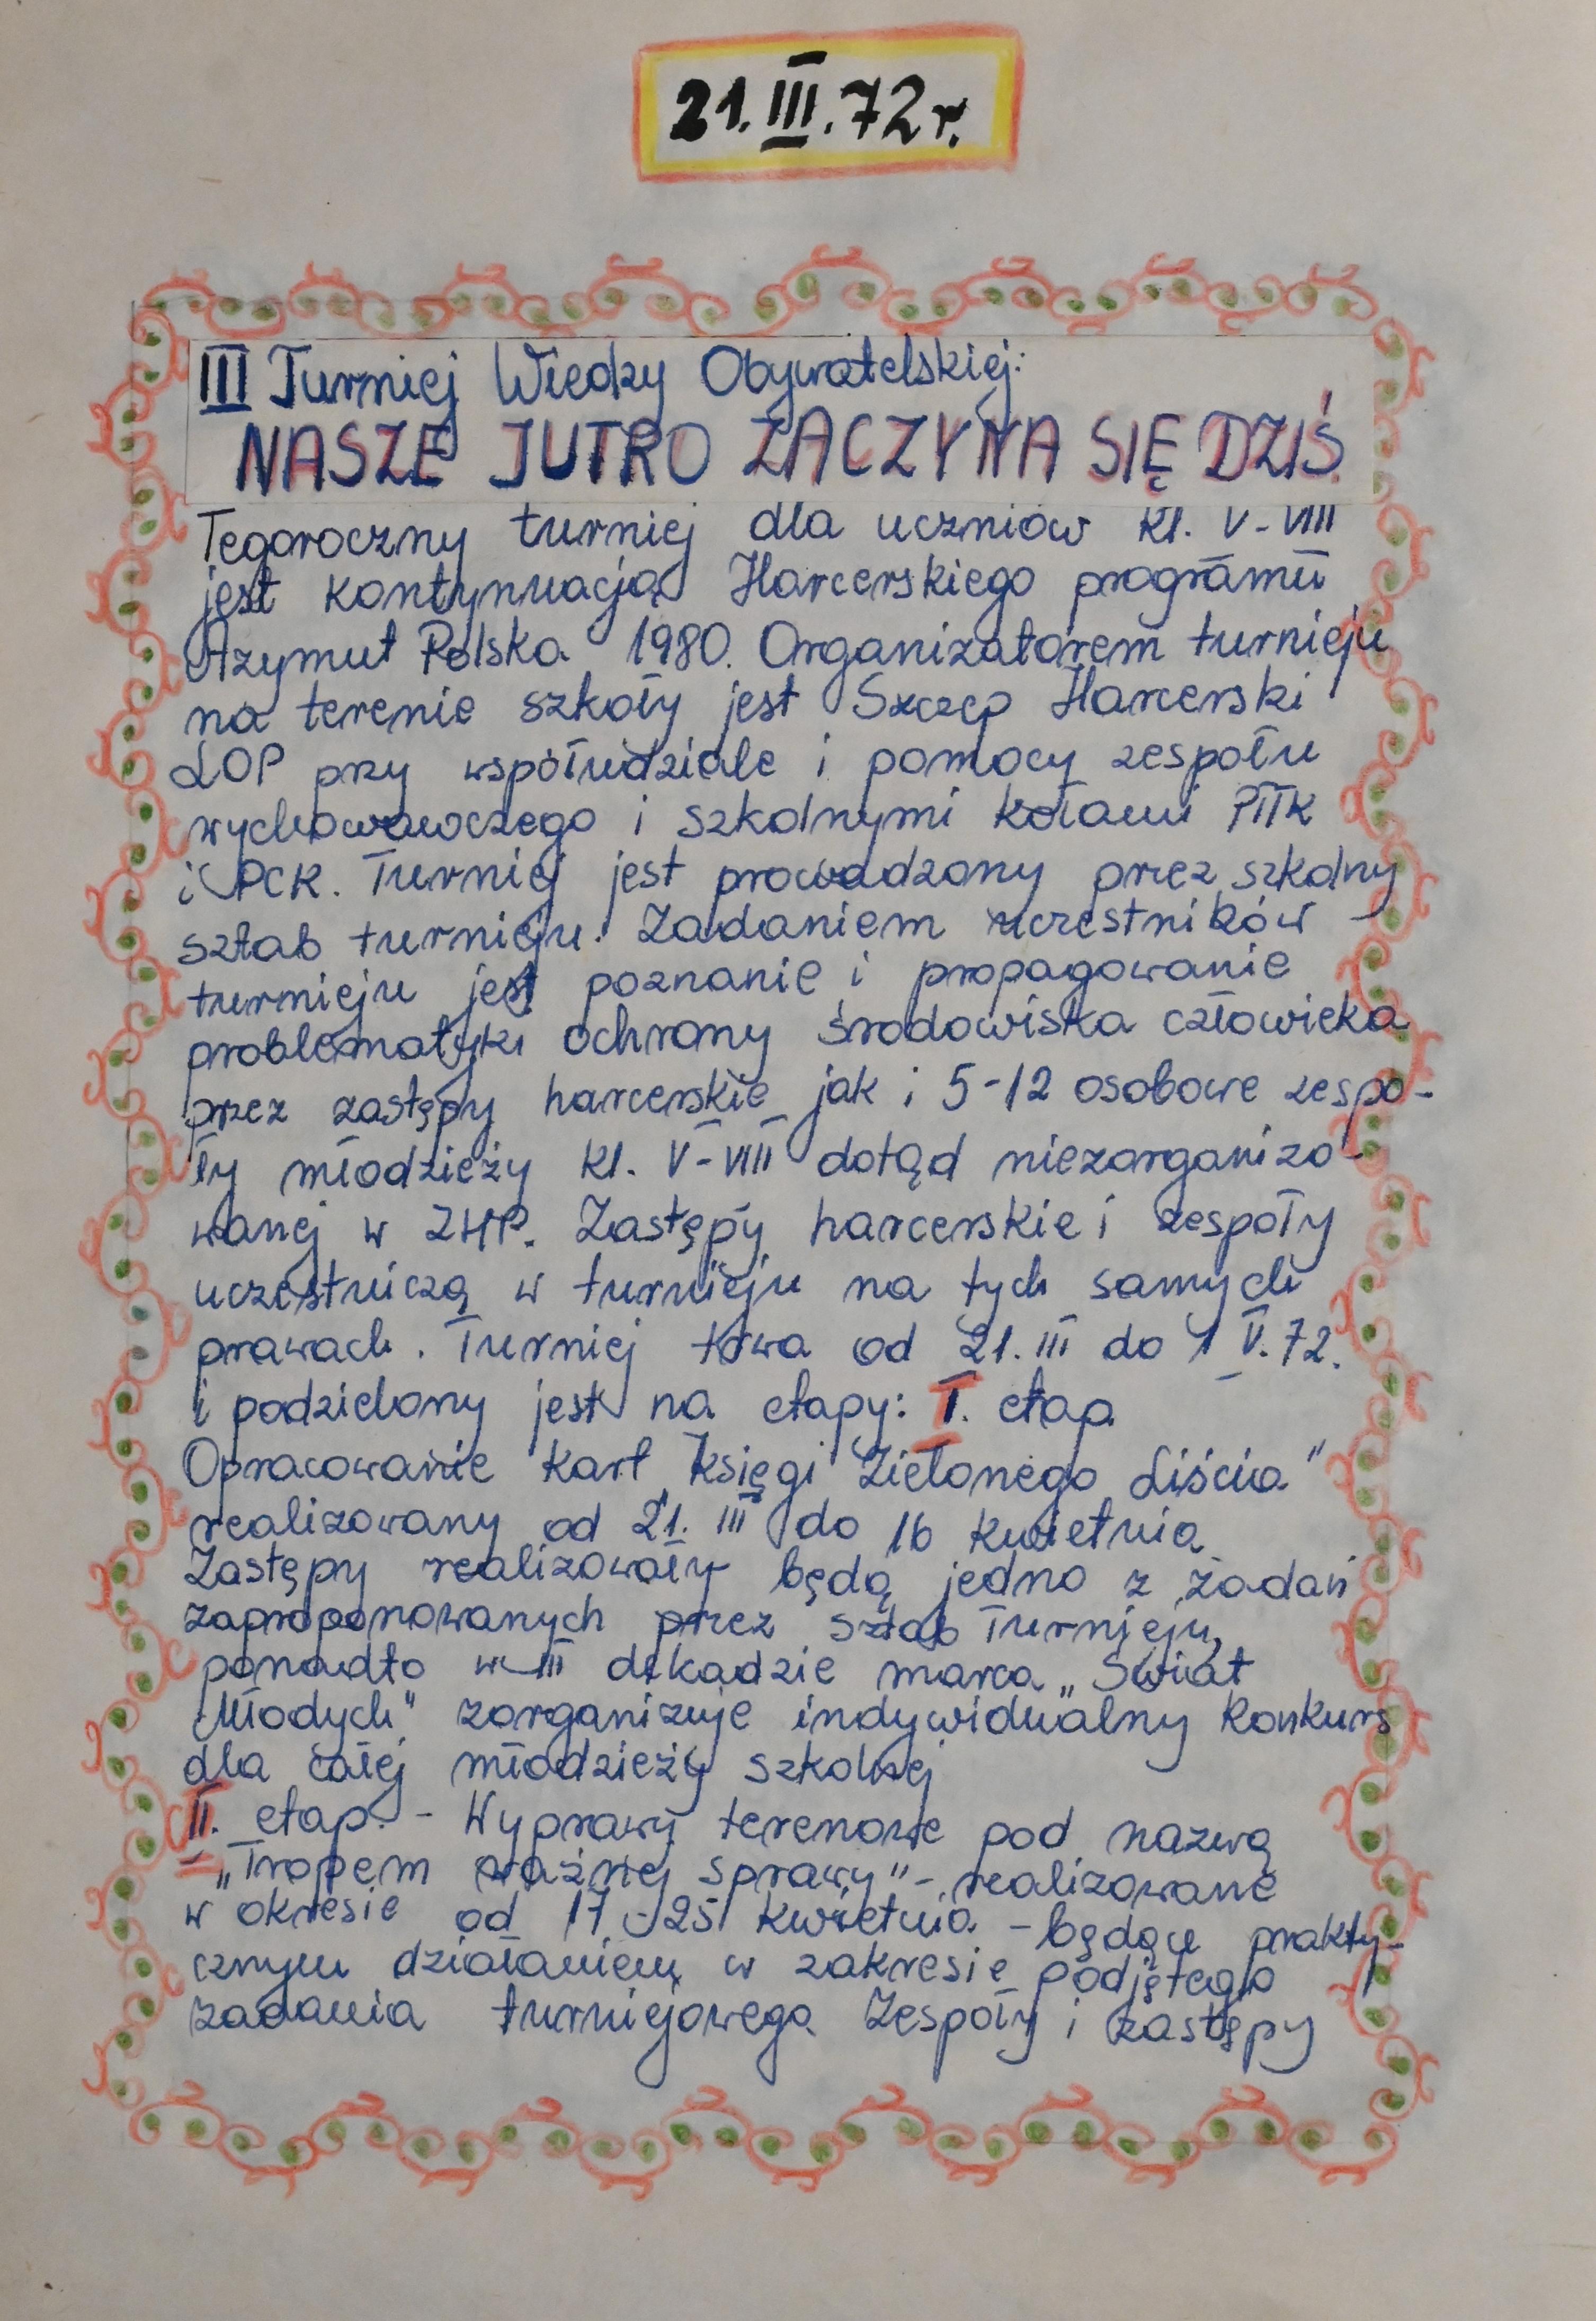 21.III.72r.
III Turniej Wiedzy Obywatelskiej:
NASZE JUTRO ZACZYNA SIĘ DZIŚ
Tegoroczny turniej dla uczniów kl. V-VIII
jest kontynuacją Harcerskiego programu
Azymut Polska 1980. Organizatorem turnieju
na terenie szkoły jest Szczep Harcerski
LOP przy współudziale i pomocy zespołu
wychowawczego i szkolnymi kołami PTTK
i PCK. Turniej jest prowadzony przez szkolny
sztab turnieju. Zadaniem uczestników
turnieju jest poznanie i propagowanie
problematyki ochrony środowiska człowieka
przez zastępy harcerskie jak i 5-12 osobowe zespo-
ły młodzieży kl. V-VIII dotąd niezorganizo-
wanej w ZHP. Zastępy harcerskie i zespoły
uczestniczą w turnieju na tych samych
prawach. Turniej trwa od 21.III do 1 V.72.
i podzielony jest na etapy: I. etap
Opracowanie kart „Księgi Zielonego Liścia"
realizowany od 21. III do 16 kwietnia.
Zastępy realizowały będą jedno z zadań
zaproponowanych przez sztab Turnieju,
ponadto w III dekadzie marca „Świat
Młodych" zorganizuje indywidualny konkurs
dla całej młodzieży szkolnej
II. etap. - Wyprawy terenowe pod nazwą
„Tropem ważnej sprawy" - realizowane
w okresie od 17 - 25 kwietnia - będące prakty-
cznym działaniem w zakresie podjętego
zadania turniejowego. Zespoły i zastępy